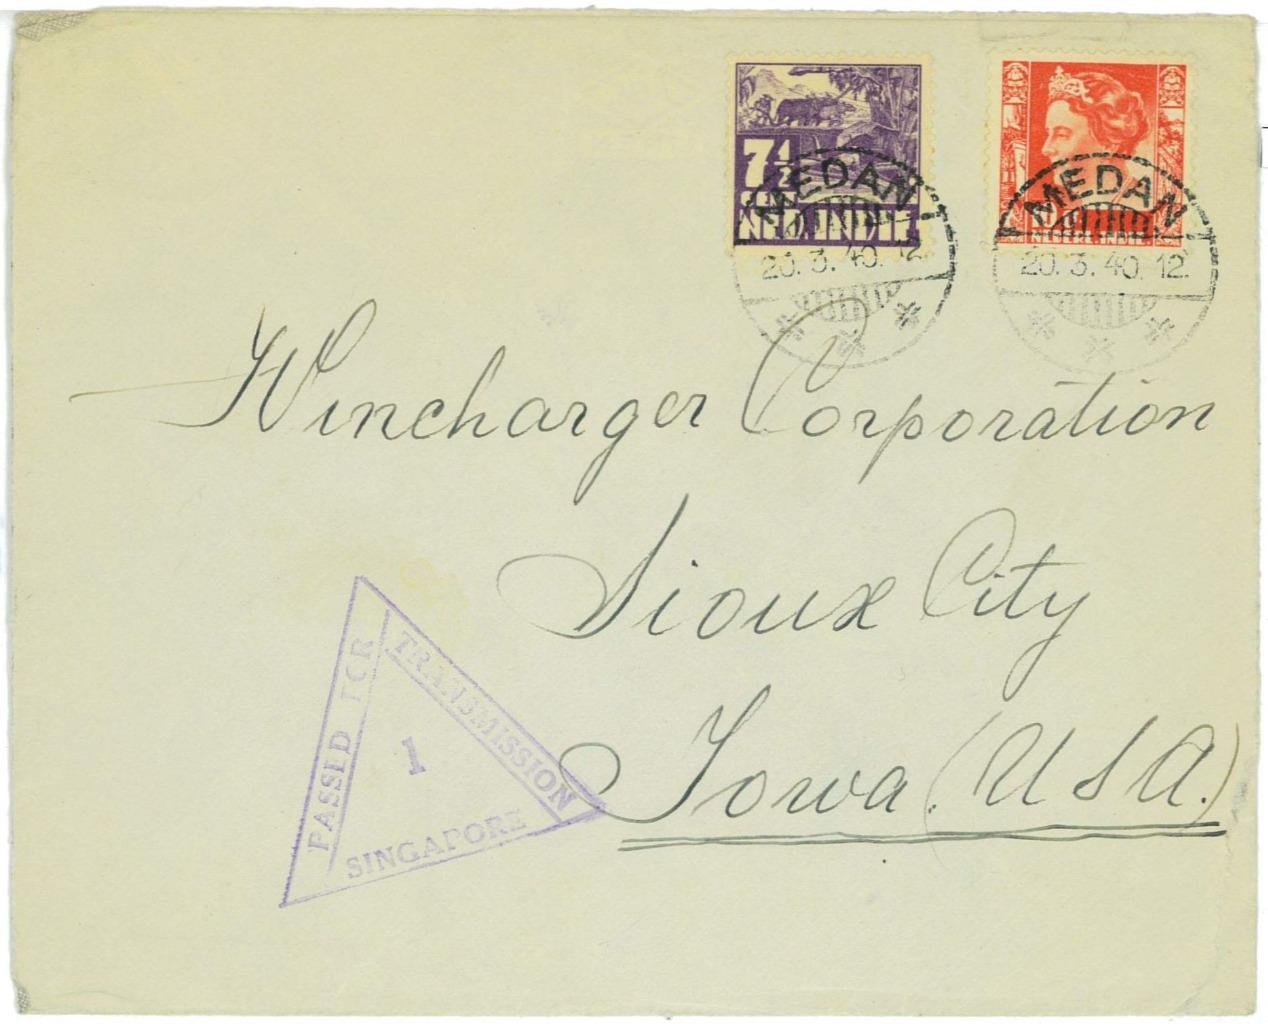 7½
NED. INDIE
NEDERL. INDIE
MEDAN
20.3.40.12
MEDAN
20.3.40.12.
Wincharger Corporation
Sioux City
Iowa (USA.)
PASSED FOR
TRANSMISSION
1
SINGAPORE